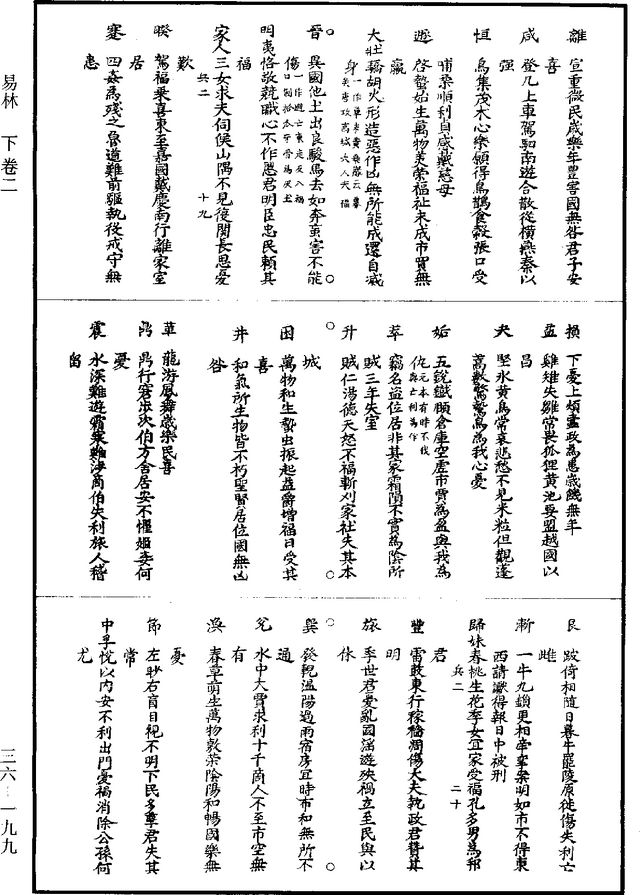 離 宣重微民歲樂年豐害國無咎君子安
喜
咸 登几上車駕駟南遊合散從橫燕秦以
强
恒 鳥集茂木心樂願得鳥鵲食穀張口受
哺柔順利貞感戴慈母
遯 啓蟄始生萬物美榮福祉未成市賈無
贏
大壯 驕胡火形造惡作凶無所能成還自滅
身
晉 異國他土出良駿馬去如奔䖟害不能
傷
明夷 恪敬兢職心不作慝君明臣忠民賴其
福
家人 三女求夫伺候山隅不見復關長思憂
歎 兵二 十九
睽 駕福乗喜東至嘉國戴慶南行離家室
居
蹇 四姦為殘之魯道難前驅執役戒守無
患
損 下憂上煩蠹政為患歲饑無年
益 雞雉失雛常畏狐狸黃池要盟越國以
昌
夬 堅氷黃鳥常哀悲愁不見米粒但觀蓬
蒿數驚鷙鳥為我心憂
姤 五銳鐵頤倉庫空虛市賈為盈與我為
仇 元本有時不伐與亡利為作
萃 竊名盜位居非其家霜隕不實為陰所
賊三年失室
升 賊仁湯德天怒不福斬刈家社失其本
城
困 萬物和生蟄虫振起益爵增福日受其
喜
井 和氣所生物皆不朽聖賢居位國無凶
咎
革 龍游鳳舞歲樂民喜
鼎 鼎行窘步次伯方舍居安不懼姬姜何
憂
震 水深難遊霜寒難涉商伯失利旅人稽
留
艮 跛倚相隨日暮牛罷陵原徙傷失利亡
雌
漸 一牛九鎖更相牽攣案明如市不得東
西請讞得報日中被刑
歸妹 春桃生花季女宜家受福孔多男為邦
君 兵二 二十
豐 雷鼓東行稼穡凋傷大夫執政君替其
明
旅 季世君憂亂國滛遊殃禍立至民與以
休
巽 發軔溫陽過雨宿房宜時布和無所不
通
兌 水中大賈求利十千商人不至市空無
有
渙 春草萌生萬物敷榮陰陽和暢國樂無
憂
節 左眇右盲目視不明下民多孽君失其
常
中孚 恱以內安不利出門憂禍消除公孫何
尤
易林 下卷二
三六—一九九